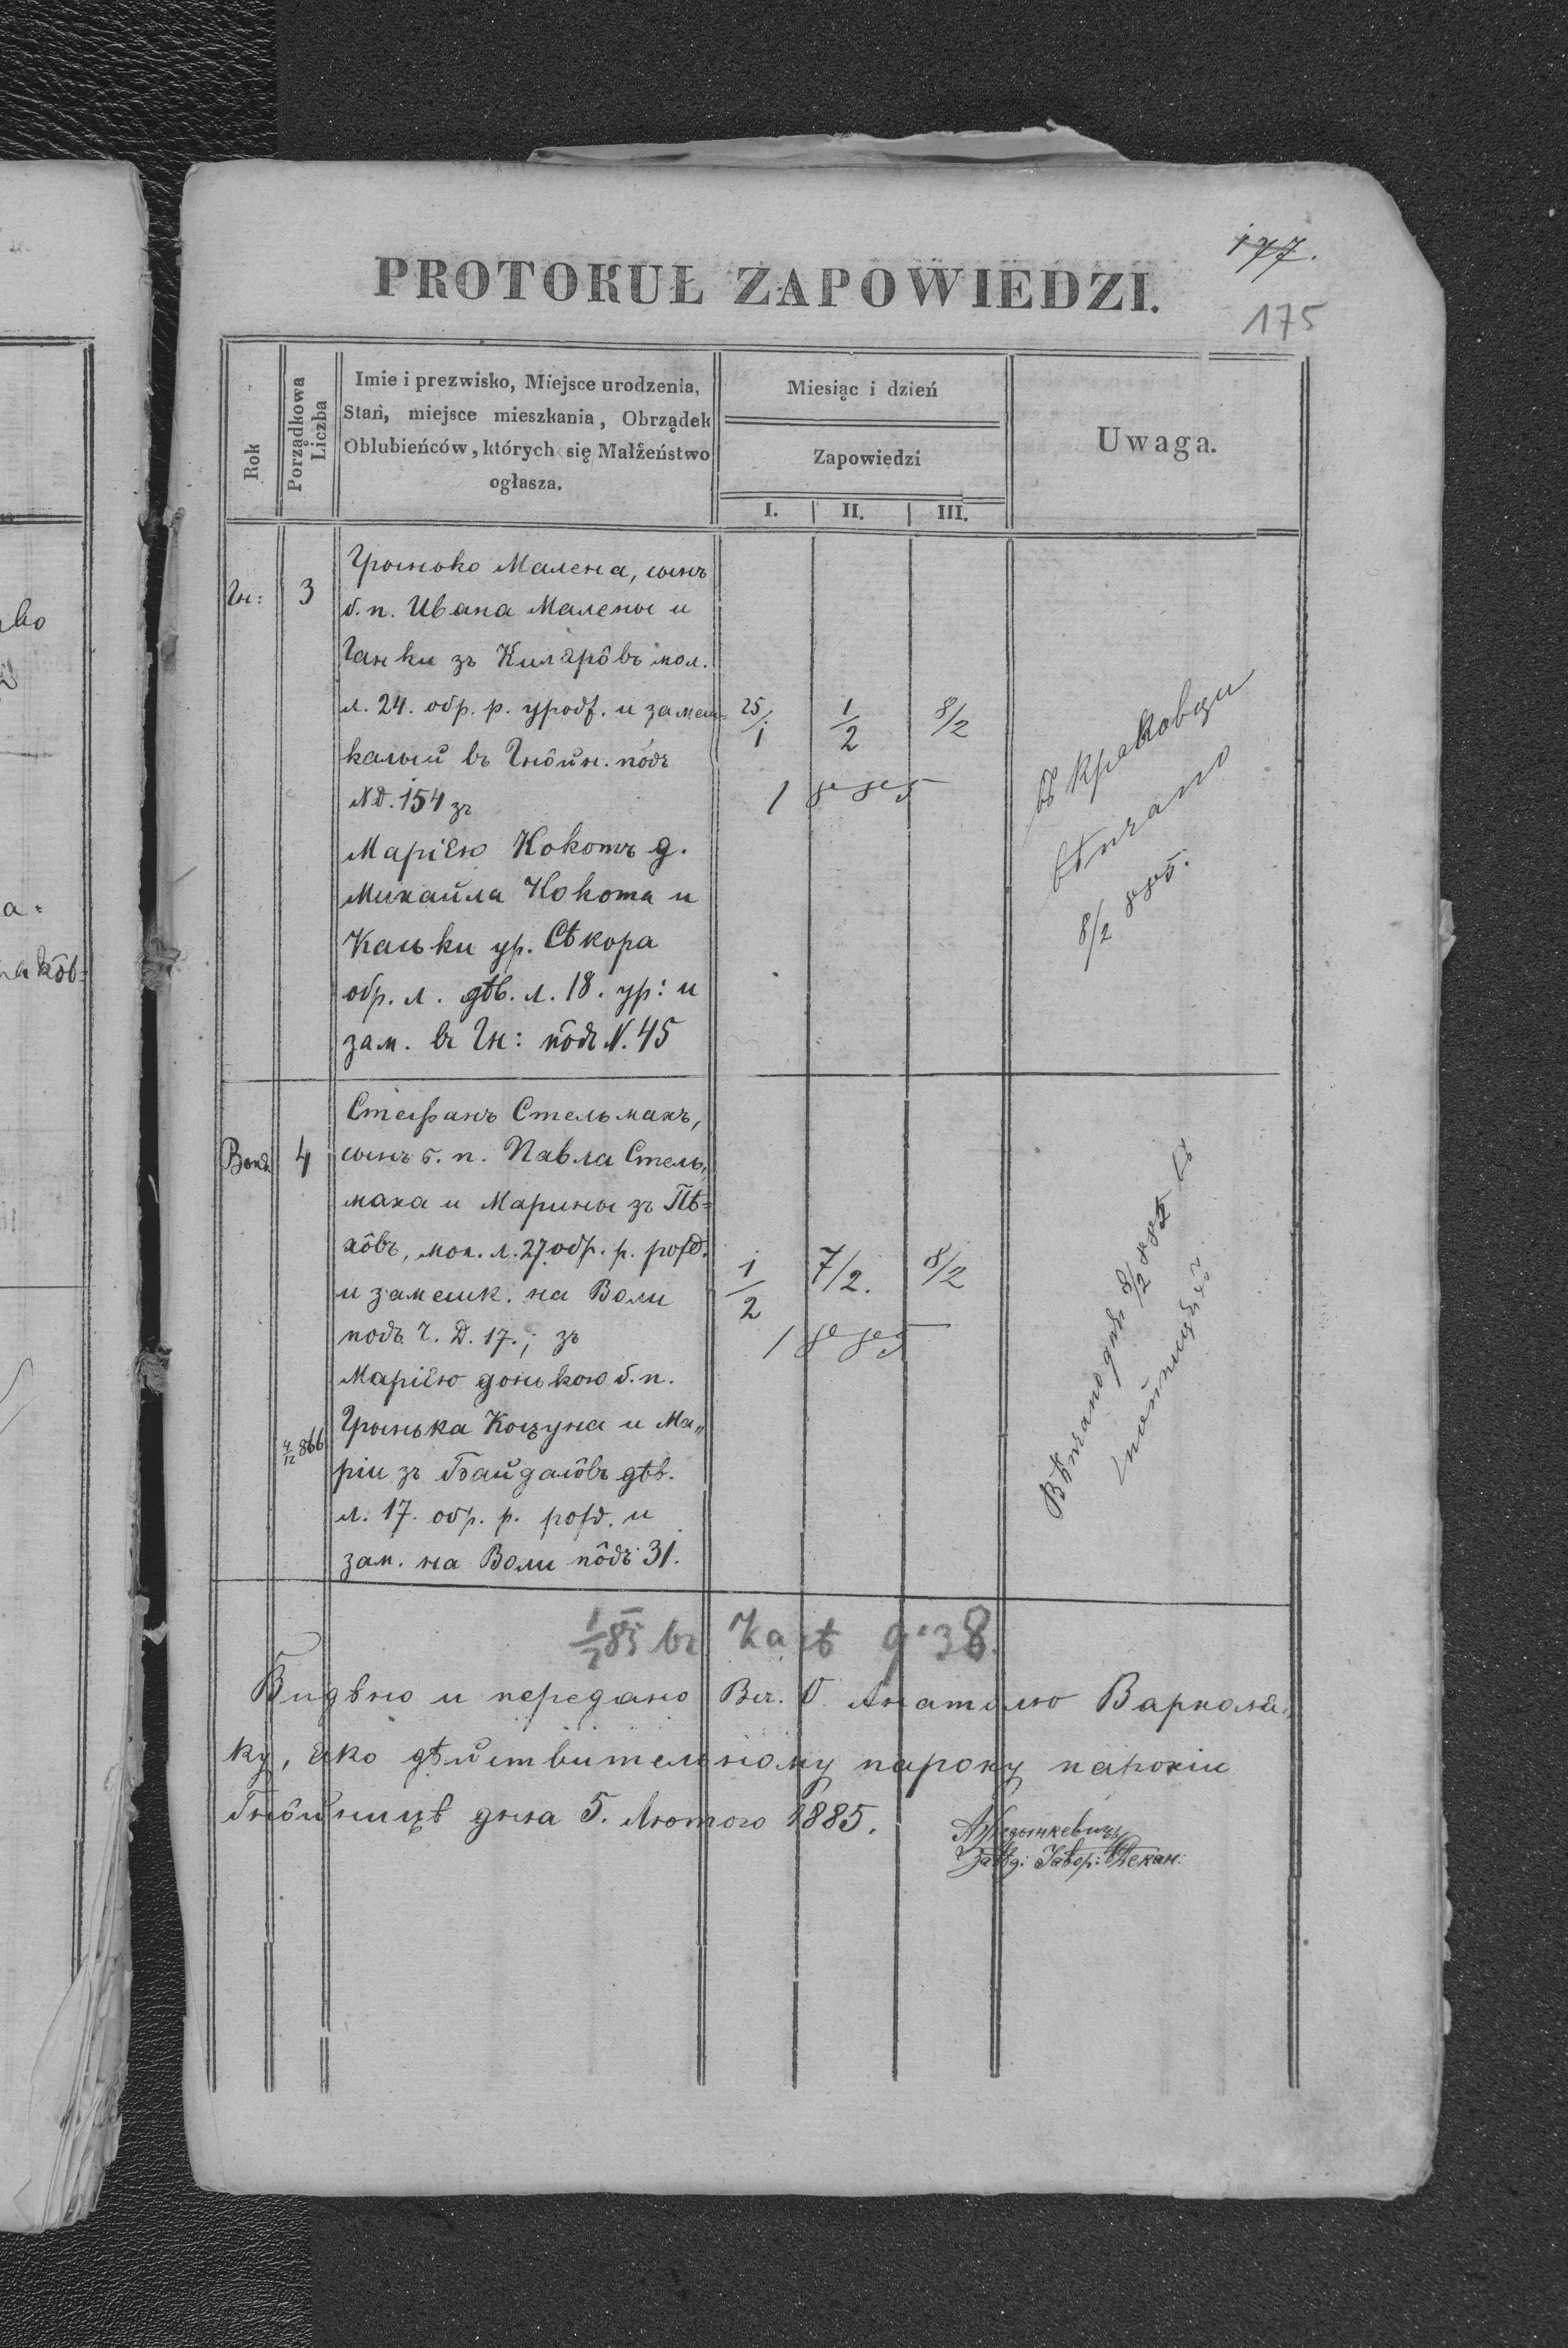 177.
PROTOKUŁ ZAPOWIEDZI.
175
Rok
Porządkowa Liczba
Imie i prezwisko, Miejsce urodzenia,
Stan, miejsce mieszkania, Obrządek
Oblubieńców, których się Małżeństwo
ogłasza.
Miesiąc i dzień
Zapowiedzi
I. II. III.
Uwaga.
Гн: 3
Грынько Малена, сынъ
б. п. Ивана Малены и
Ганки зъ мол.
л. 24. обр. р. урод. и замеш=
калый въ Гнôйн. пôдъ
Nд. 154 зъ
Марiею Кокотъ д.
Михайла Кокота и
Каськи ур. Сѣкора
обр. л. дѣв. л. 18. ур: и
зам. въ Гн: пôдъ N. 45
25/1 1/2 8/2
1885
въ Краковци
вѣнчано
8/2 885.
Воля 4
Стефанъ Стельмахъ,
сынъ б. п. Павла Стель„
маха и Марины зъ Пѣ=
хôвъ, мол. л. 27 обр. р. рожд.
и замешк. на Воли
подъ ч. Д. 17.; зъ
Марiею донькою б. п.
Грынька Коцуна и Ма„
рiи зъ Байдалôвъ дѣв.
л. 17. обр. р. рожд. и
зам. на Воли пôдъ 31.
4/12 866
1/2 7/2. 8/2
1885
Вѣнчано днѣ 8/2 885 въ
1/2 85 въ д. 38.
Видѣно и передано Вч. О. Анатолю
ку, яко дѣйствительному пароху парохiи
Гнôйницѣ дня 5. Лютого 1885.
Завѣд. Явор: Декан.